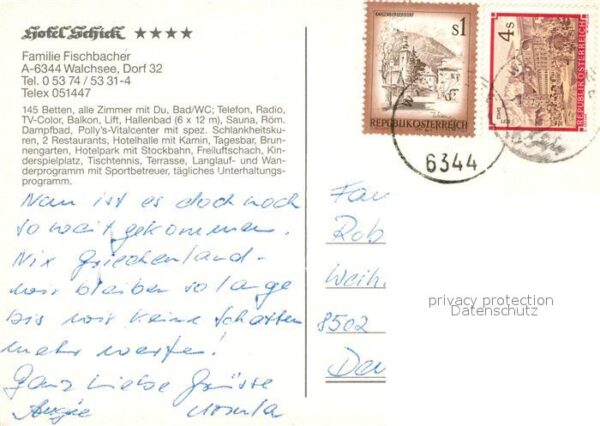 Hotel Schick ★★★★
Familie Fischbacher
A-6344 Walchsee, Dorf 32
Tel. 0 53 74 / 53 31-4
Telex 051447
145 Betten, alle Zimmer mit Du, Bad/WC; Telefon, Radio,
TV-Color, Balkon, Lift, Hallenbad (6 x 12 m), Sauna, Röm.
Dampfbad, Polly's-Vitalcenter mit spez. Schlankheitsku-
ren, 2 Restaurants, Hotelhalle mit Kamin, Tagesbar, Brun-
nengarten, Hotelpark mit Stockbahn, Freiluftschach, Kin-
derspielplatz, Tischtennis, Terrasse, Langlauf- und Wan-
derprogramm mit Sportbetreuer, tägliches Unterhaltungs-
programm.
Nun ist es doch noch
so weit gekommen.
Nix Griechenland -
wir bleiben so lange
bis wir keine Schatten
mehr werfen!
Ganz liebe Grüsse
Ursula
S1
REPUBLIK ÖSTERREICH
4S
REPUBLIK ÖSTERREICH
6344
Fa
Rob
Weih
8502
privacy protection
Datenschutz